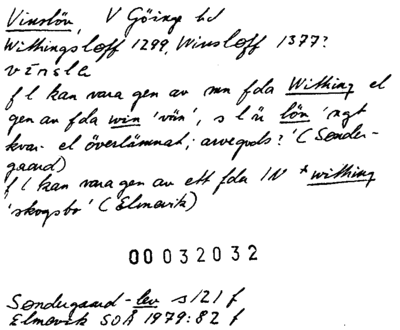 Vinslöv, V Göinge hd
Withingsloff 1299, Winsloff 1377?
vínsla
f l kan vara gen av mn fda Withing el
gen av fda win 'vän', s l är löv 'ngt
kvar- el överlämnat; arvegods?' (Sønder-
gaard)
f l kan vara gen av ett fda IN *withing
'skogsbo' (Elmevik)
00032032
Søndergaard -lev s 121 f
Elmevik SOÅ 1979:82 f